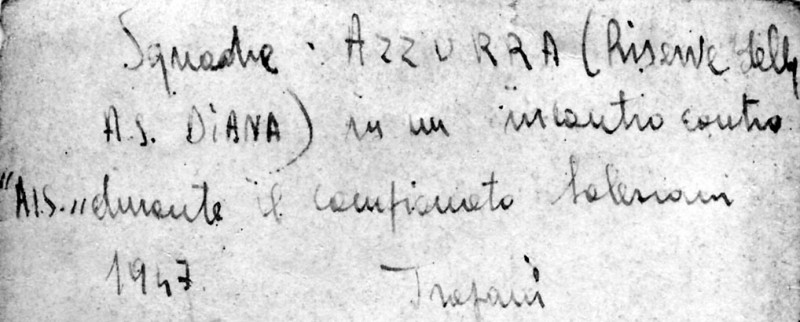 Squadra: AZZURRA (Riserve della
A.S. DIANA) in un incontro contro
"A.I.S." durante il campionato Salesiani
1947. Trapani